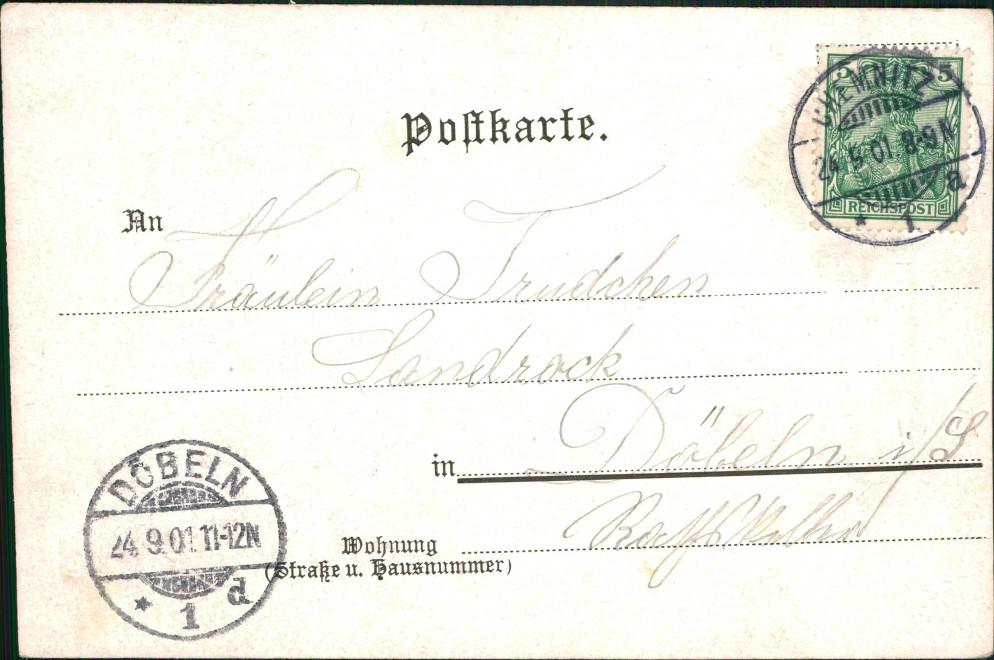 Postkarte.
5 5
CHEMNITZ
24.5.01.8-9N
a
* 1
REICHSPOST
An
Fräulein Trudchen
Landrock
in Döbeln i/S
DÖBELN
24.9.01.11-12N
* 1 d
Wohnung
(Straße u. Hausnummer)